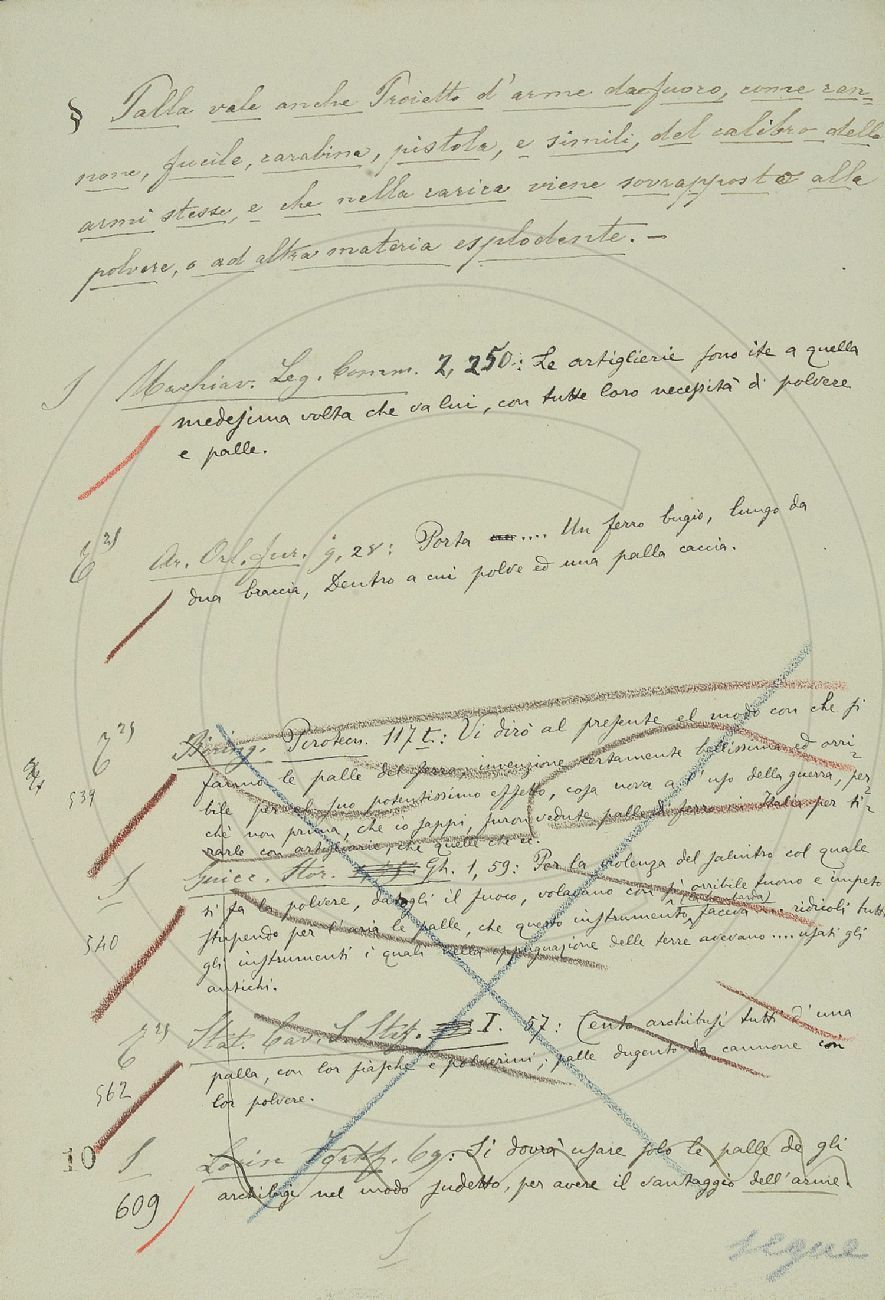 § Palla vale anche Proietto d'arme da fuoco, come can-
none, fucile, carabina, pistola, e simili, del calibro delle
armi stesse, e che nella carica viene sovrapposta alla
polvere, o ad altra materia esplodente. —
S Machiav. Leg. Comm. 2, 250: Le artiglierie sono ite a quella
medesima volta che va lui, con tutte loro necessità di polvere
e palle.
Ar. Orl. fur. 9, 28: Porta .... Un ferro bugio, lungo da
dua braccia, Dentro a cui polve ed una palla caccia.
Biring. Pirotecn. 117 t.: Vi dirò al presente el modo con che si
fanno le palle del ferro, invenzione certamente bellissima ed orri-
bile per el suo potentissimo effetto, cosa nova a l'uso della guerra, per-
539
ché non prima, che io sappi, furon vedute palle di ferro in Italia per ti-
rarle con artiglierie, che quelle che ec.
S Guicc. Stor. Gh. 1, 59: Per la violenza del salnitro col quale
si fa la polvere, datogli il fuoco, volavano con sì orribile suono e impeto
540 stupendo per l'aria le palle, che questo instrumento faceva .... ridicoli tutti
gli instrumenti i quali nella oppugnazione delle terre avevano .... usati gli
antichi.
Stat. Cav. S. Stef. I. 57: Cento archibusi tutti d'una
562 palla, con lor fiasche e polverini; palle dugento da cannone con
lor polvere.
10 S 69: Si dovrà usare solo le palle de gli
609 archibugi nel modo sudetto, per avere il vantaggio dell'arme.
S
segue